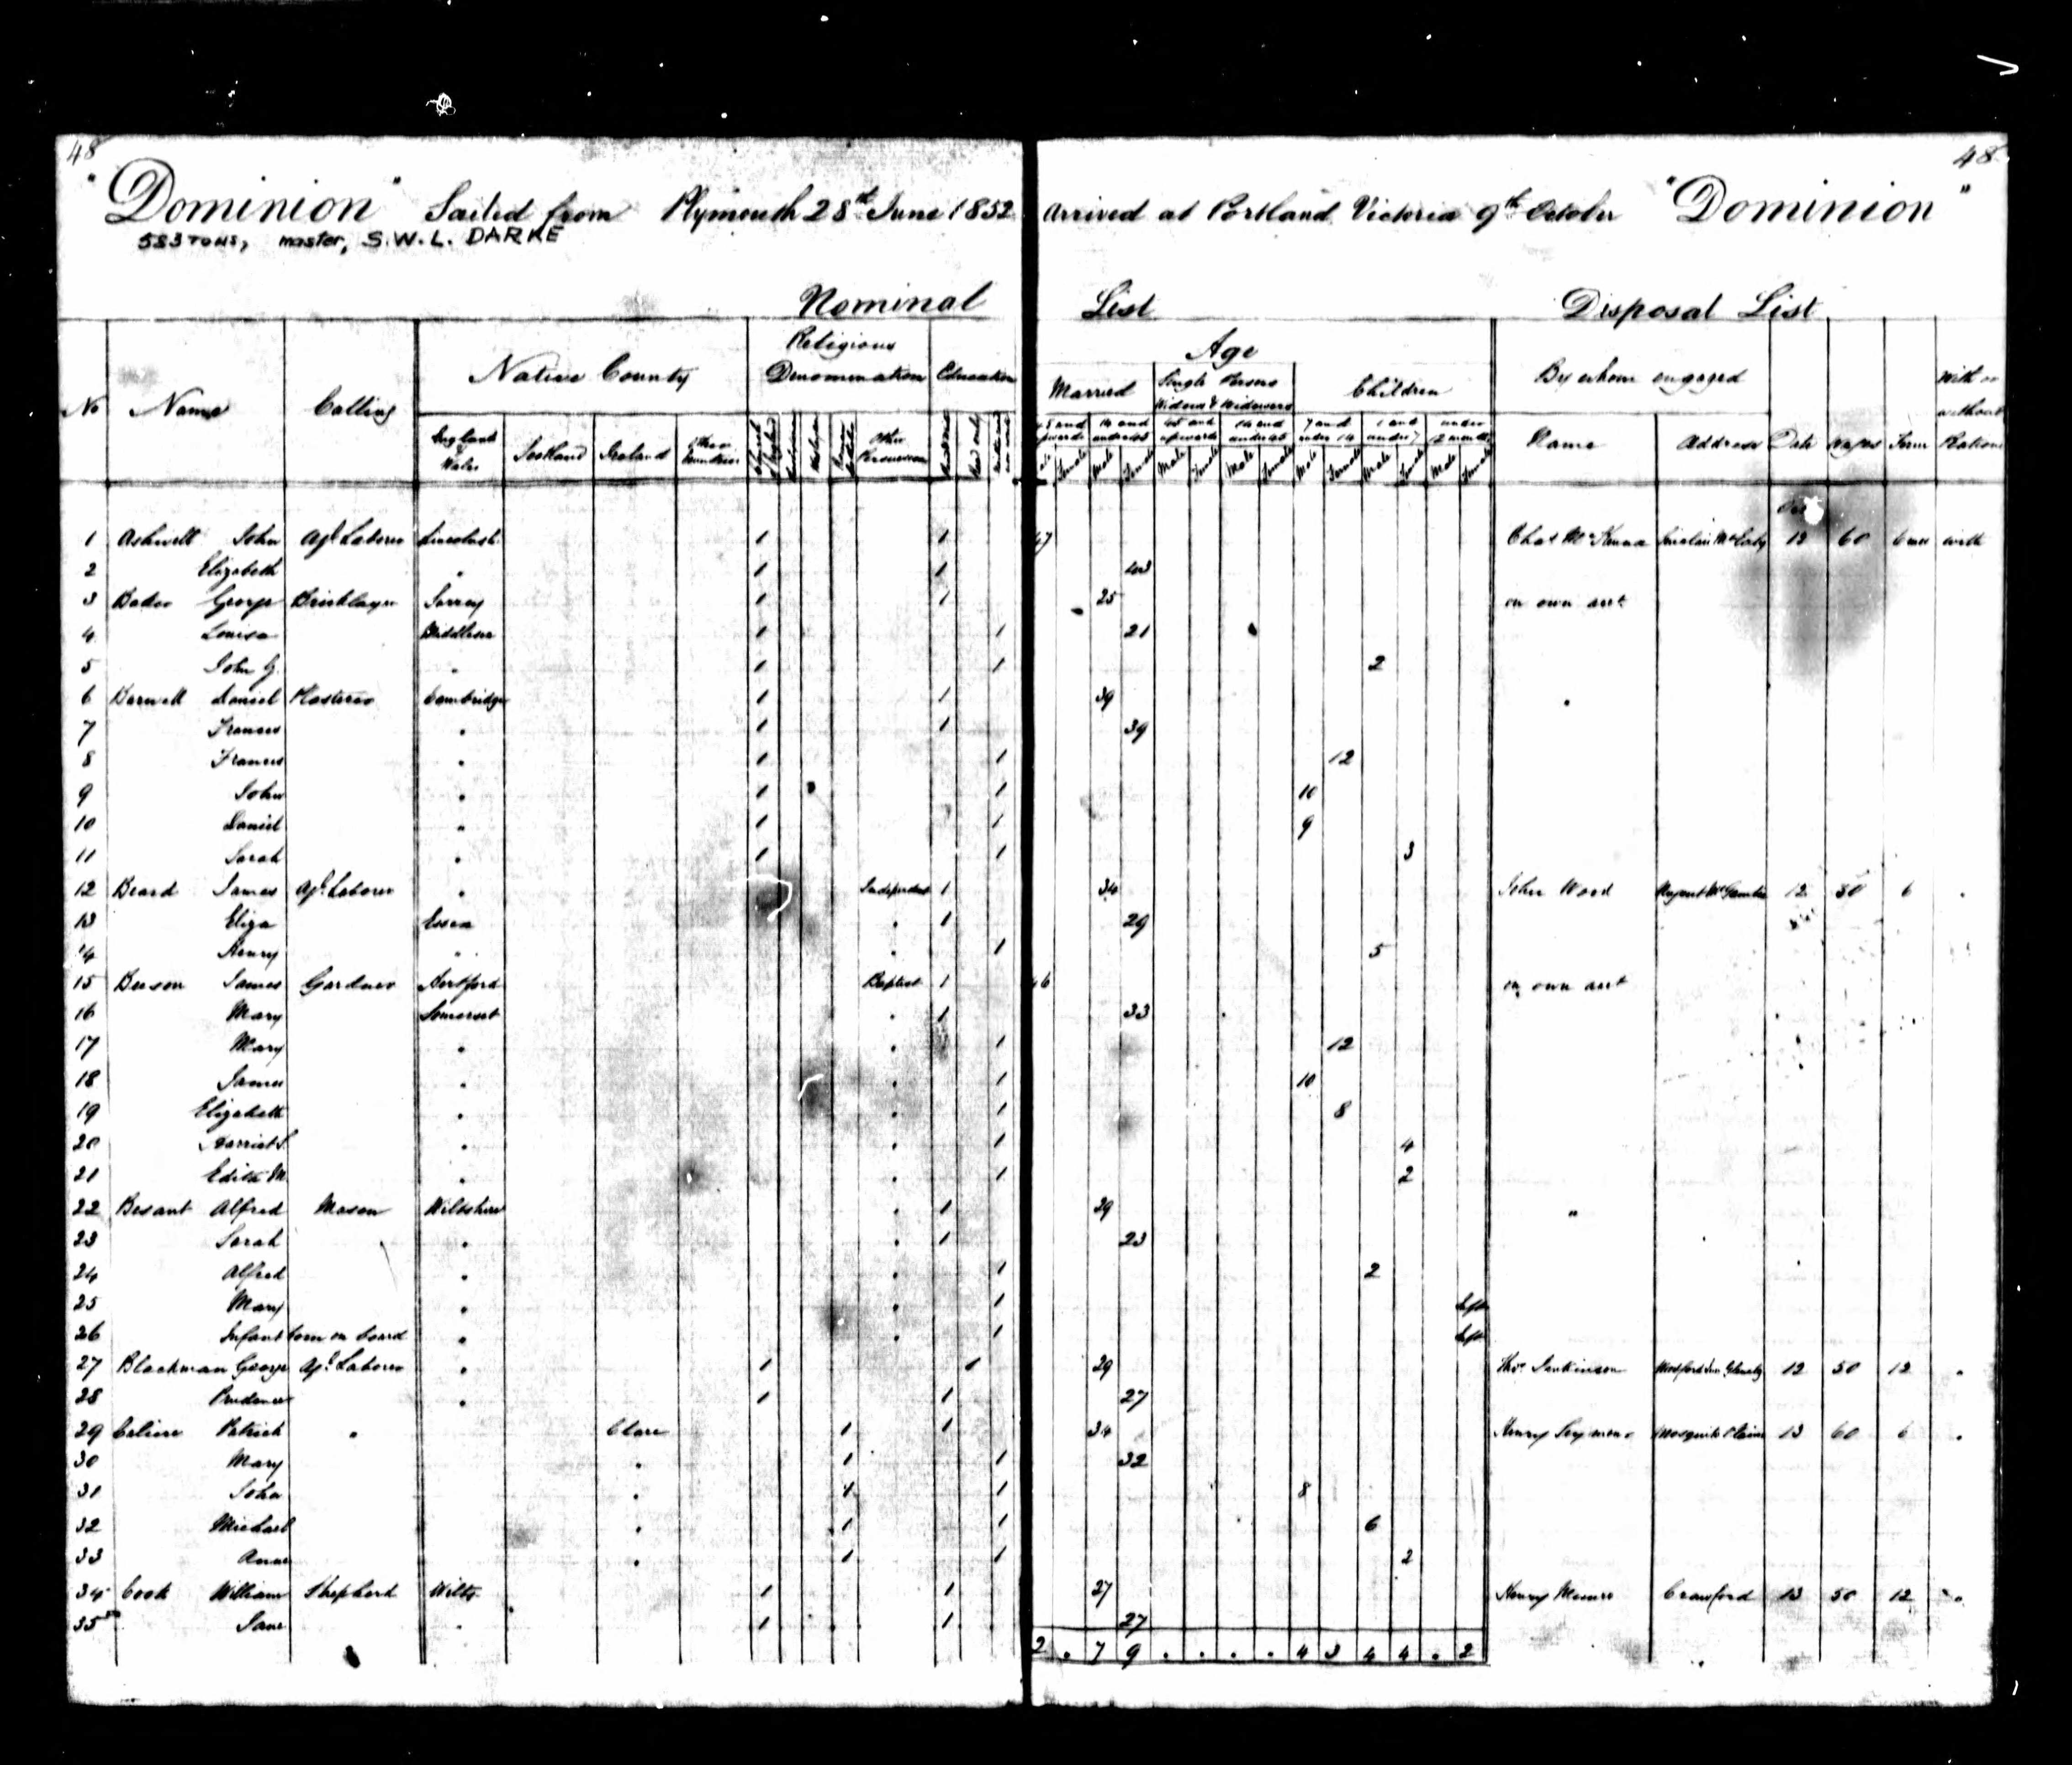 48 48
"Dominion" Sailed from Plymouth 28th June 1852 arrived at Portland Victoria 9th October "Dominion"
583 TONS, master, S.W.L. DARKE
Nominal List Disposal List
Religious Age
Native County Denomination Education Married Single Persons Widows & Widowers Children By whom engaged With or without Rations
No Name Calling England & Wales Scotland Ireland Other Countries Other Persuasions Name Address Date Wages Term
Male Female Male Female Male Female Male Female Male Female Male Female Male Female
1 Ashwell John Agl Laborer Lincolnsh. 1 1 47 Chas McKenna 12 60 6 with
2 Elizabeth " 1 1 43
3 George Bricklayer Surrey 1 1 25 on own acct
4 Louisa Middlesex 1 1 21
5 John G. " 1 1 2
6 Barwell Daniel Plasterer Cambridge 1 1 39 "
7 Frances " 1 1 39
8 Frances " 1 1 12
9 John " 1 1 10
10 Daniel " 1 1 9
11 Sarah " 1 1 3
12 Beard James Agl Laborer " Independent 1 34 John Wood 12 30 6 "
13 Eliza Essex " 1 29
14 Henry " " 1 5
15 Beeson James Gardner Hertford Baptist 1 46 on own acct
16 Mary Somerset " 1 33
17 Mary " " 1 12
18 James " " 1 10
19 Elizabeth " " 1 8
20 Harriet S. " " 1 4
21 Edith M. " " 1 2
22 Besant Alfred Mason Wiltshire " 1 29 "
23 Sarah " " 1 23
24 Alfred " " 1 2
25 Mary " " 1 Inft
26 Infant born on board " " 1 Inft
27 Blackman George Agl Laborer " 1 1 29 Thos Jenkinson 12 50 12 "
28 Prudence " 1 1 27
29 Patrick " Clare 1 1 34 Henry Seymour Mosquito Plains 13 60 6 "
30 Mary " 1 1 32
31 John " 1 1 8
32 Michael " 1 1 6
33 Anne " 1 1 2
34 Cook William Shepherd Wilts 1 1 27 Henry Crawford 13 50 12 "
35 Jane " 1 1 27
2 . 7 9 . . . . 4 3 4 4 . 2